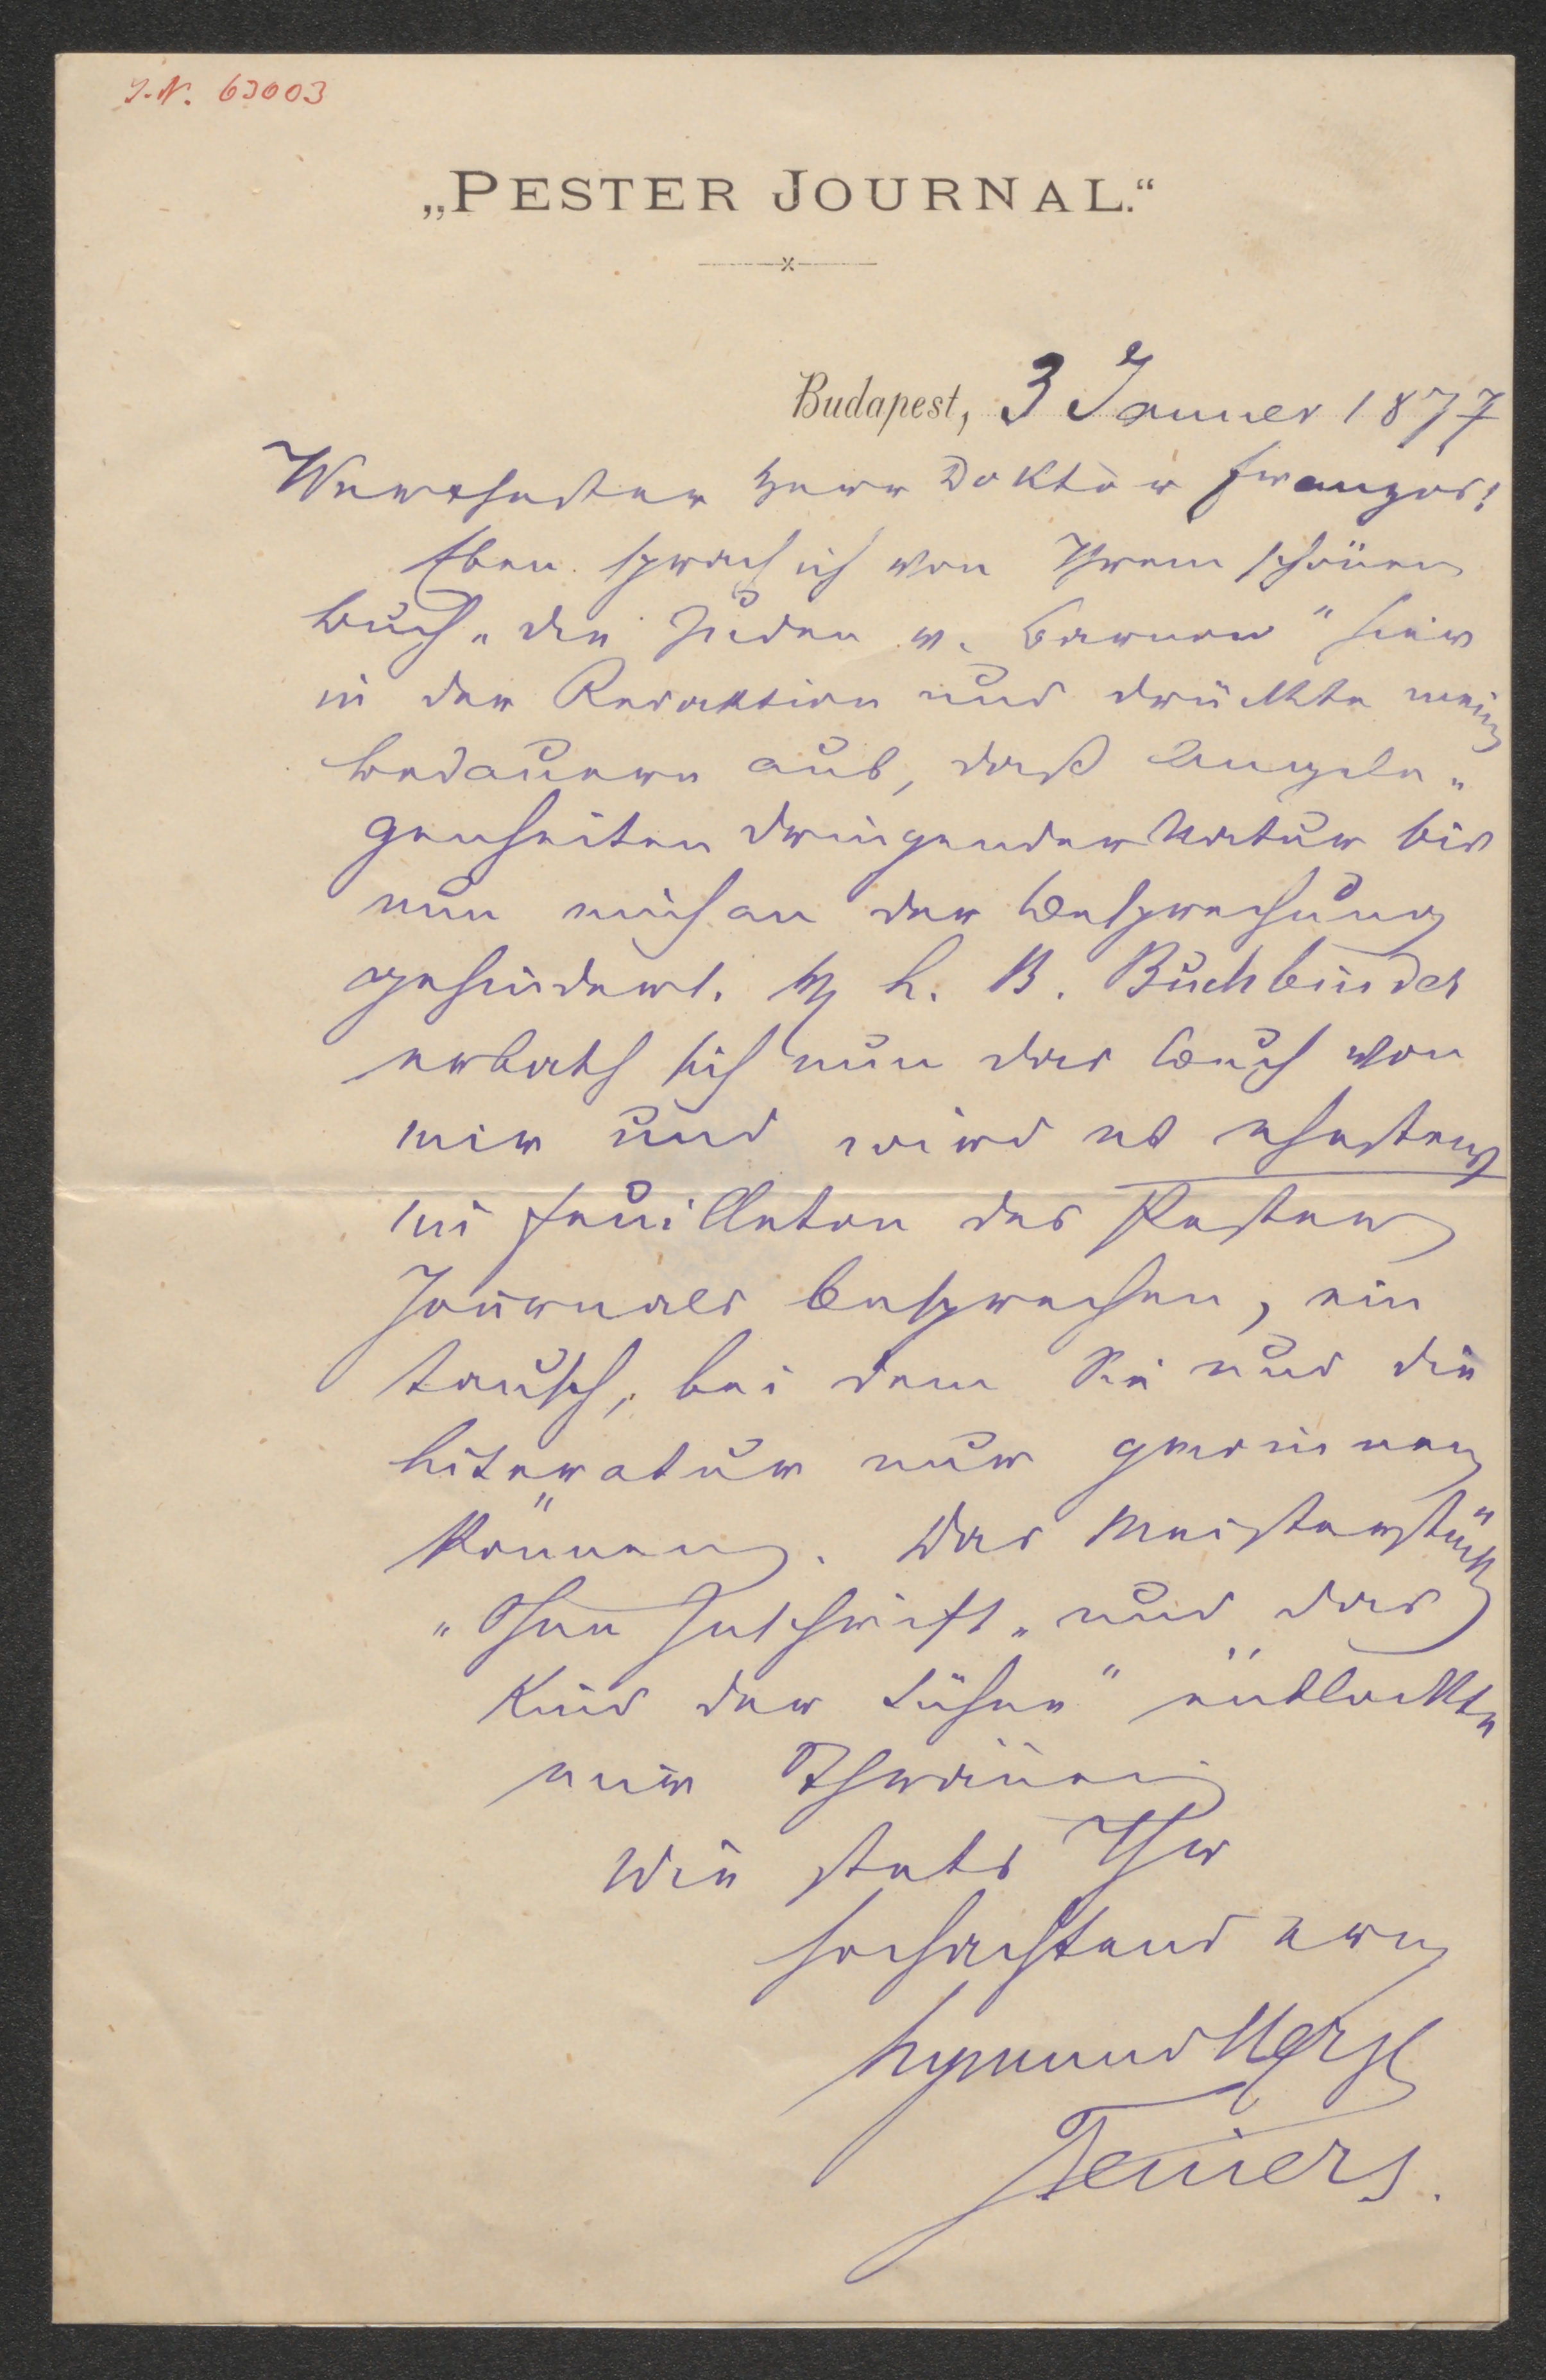 I.N. 63003
„PESTER JOURNAL.“
Budapest, 3 Jänner 1877
Werthester Herr Doktor Franzos!
Eben sprach ich von Ihrem schönen
Buch „die Juden v. Barnow“ hier
in der Redaktion und drückte mein
Bedauern aus, daß Angele„
genheiten dringender Natur bis
nun mich an der Besprechung
gehindert. H. B. Buchbinder
erbath sich nun das Buch von
mir und wird es ehestens
im Feuilleton des Pester
Journals besprechen, ein
Tausch, bei dem Sie und die
Literatur nur gewinnen
können. Das Meisterstück
„Ohne Inschrift„ und „das
Kind der Sühne“ entlockte
mir Thränen
Wie stets Ihr
hochachtend erg
Sigmund Herzl